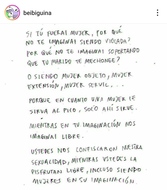 beibiguina
SI TÚ FUERAS MUJER, POR QUÉ
NO TE IMAGINAS SIENDO VIOLADA?
POR QUÉ NO TE IMAGINAS SOPORTANDO
QUE TU MARIDO TE MECHONEE?
O SIENDO MUJER OBJETO, MUJER
EXTENSIÓN, MUJER SERVIL...
PORQUE EN CUANTO UNA MUJER LE
SIRVA AL PICO, SOLO AHÍ SIRVE.
MIENTRAS EN TU IMAGINACIÓN NOS
IMAGINAS LIBRE.
USTEDES NOS CONFISCAN NUESTRA
SEXUALIDAD, MIENTRAS USTEDES LA
DISFRUTAN LIBRE, INCLUSO SIENDO
MUJERES EN SU IMAGINACIÓN.